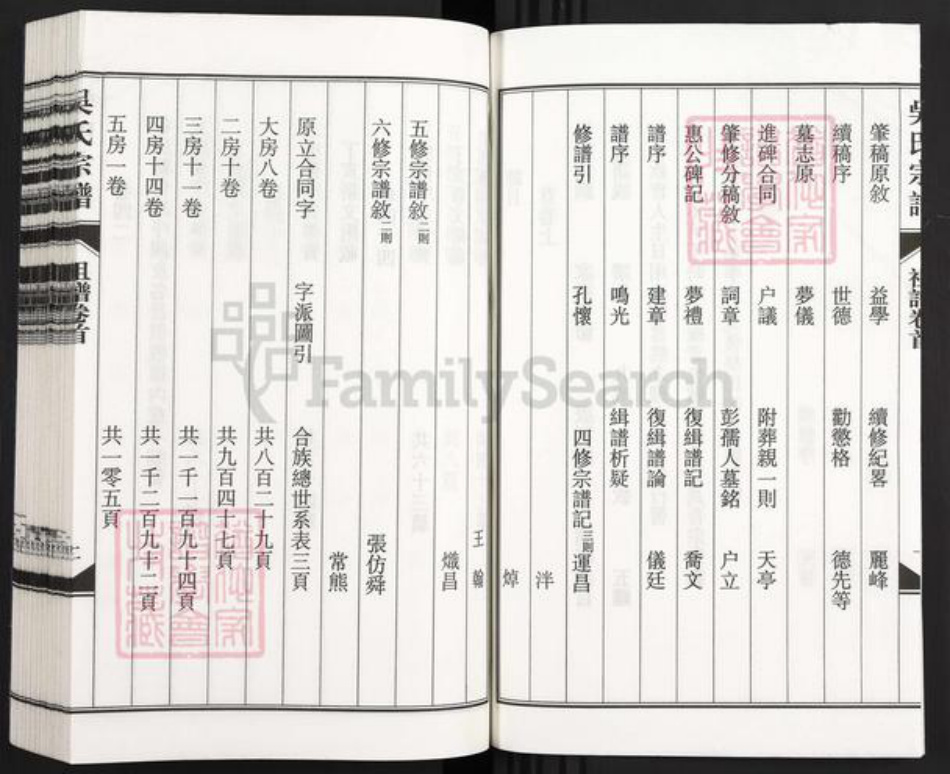 吳氏宗譜 祖譜卷首
肇稿原敘 益學 續修紀畧 麗峰
續稿序 世德 勸懲格 德先等
墓志原 夢儀
進碑合同 户議 附葬親一則 天亭
肇修分稿敘 詞章 彭孺人墓銘 户立
惠公碑記 夢禮 復緝譜記 喬文
譜序 建章 復緝譜論 儀廷
譜序 鳴光 緝譜析疑
修譜引 孔懷 四修宗譜記三則 運昌
泮
焯
王翰
熾昌
五修宗譜敘二則
六修宗譜敘二則 張仿舜
常熊
原立合同字 字派圖引 合族總世系表三頁
大房八卷 共八百二十九頁
二房十卷 共九百四十七頁
三房十一卷 共一千一百九十四頁
四房十四卷 共一千二百九十二頁
五房一卷 共一零五頁
吳氏宗譜 祖譜卷首 二
FamilySearch